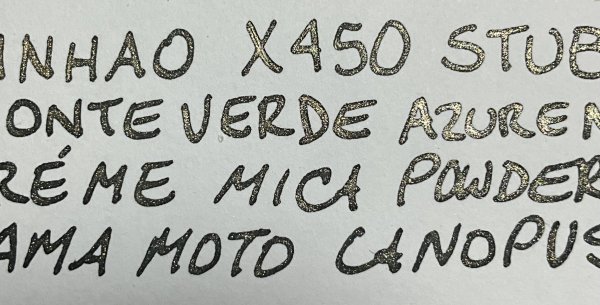 INHAO X450 STUB
ONTE VERDE AZURE N
RÉME MICA POWDER
AMA MOTO CANOPUS